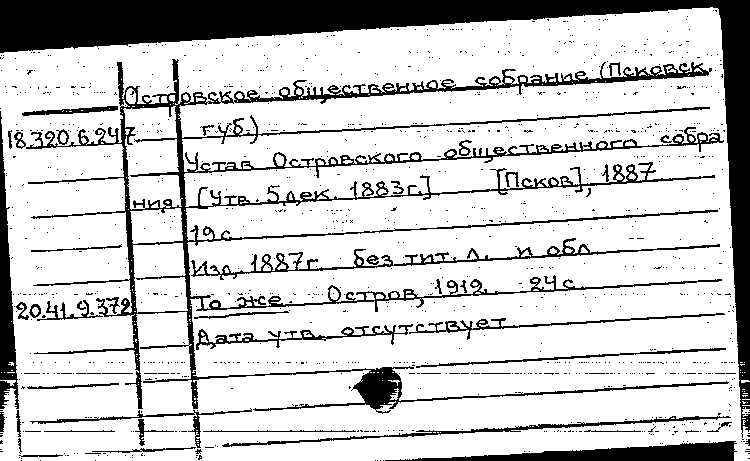 Островское общественное собрание (Псковск.
18.320.6.247 губ.)
Устав Островского общественного собра
ния. [Утв. 5 дек. 1883г.] [Псков], 1887
19с.
Изд. 1887г. без тит. л. и обл.
20.41.9.372 То же. Остров, 1912. 24с.
Дата утв. отсутствует